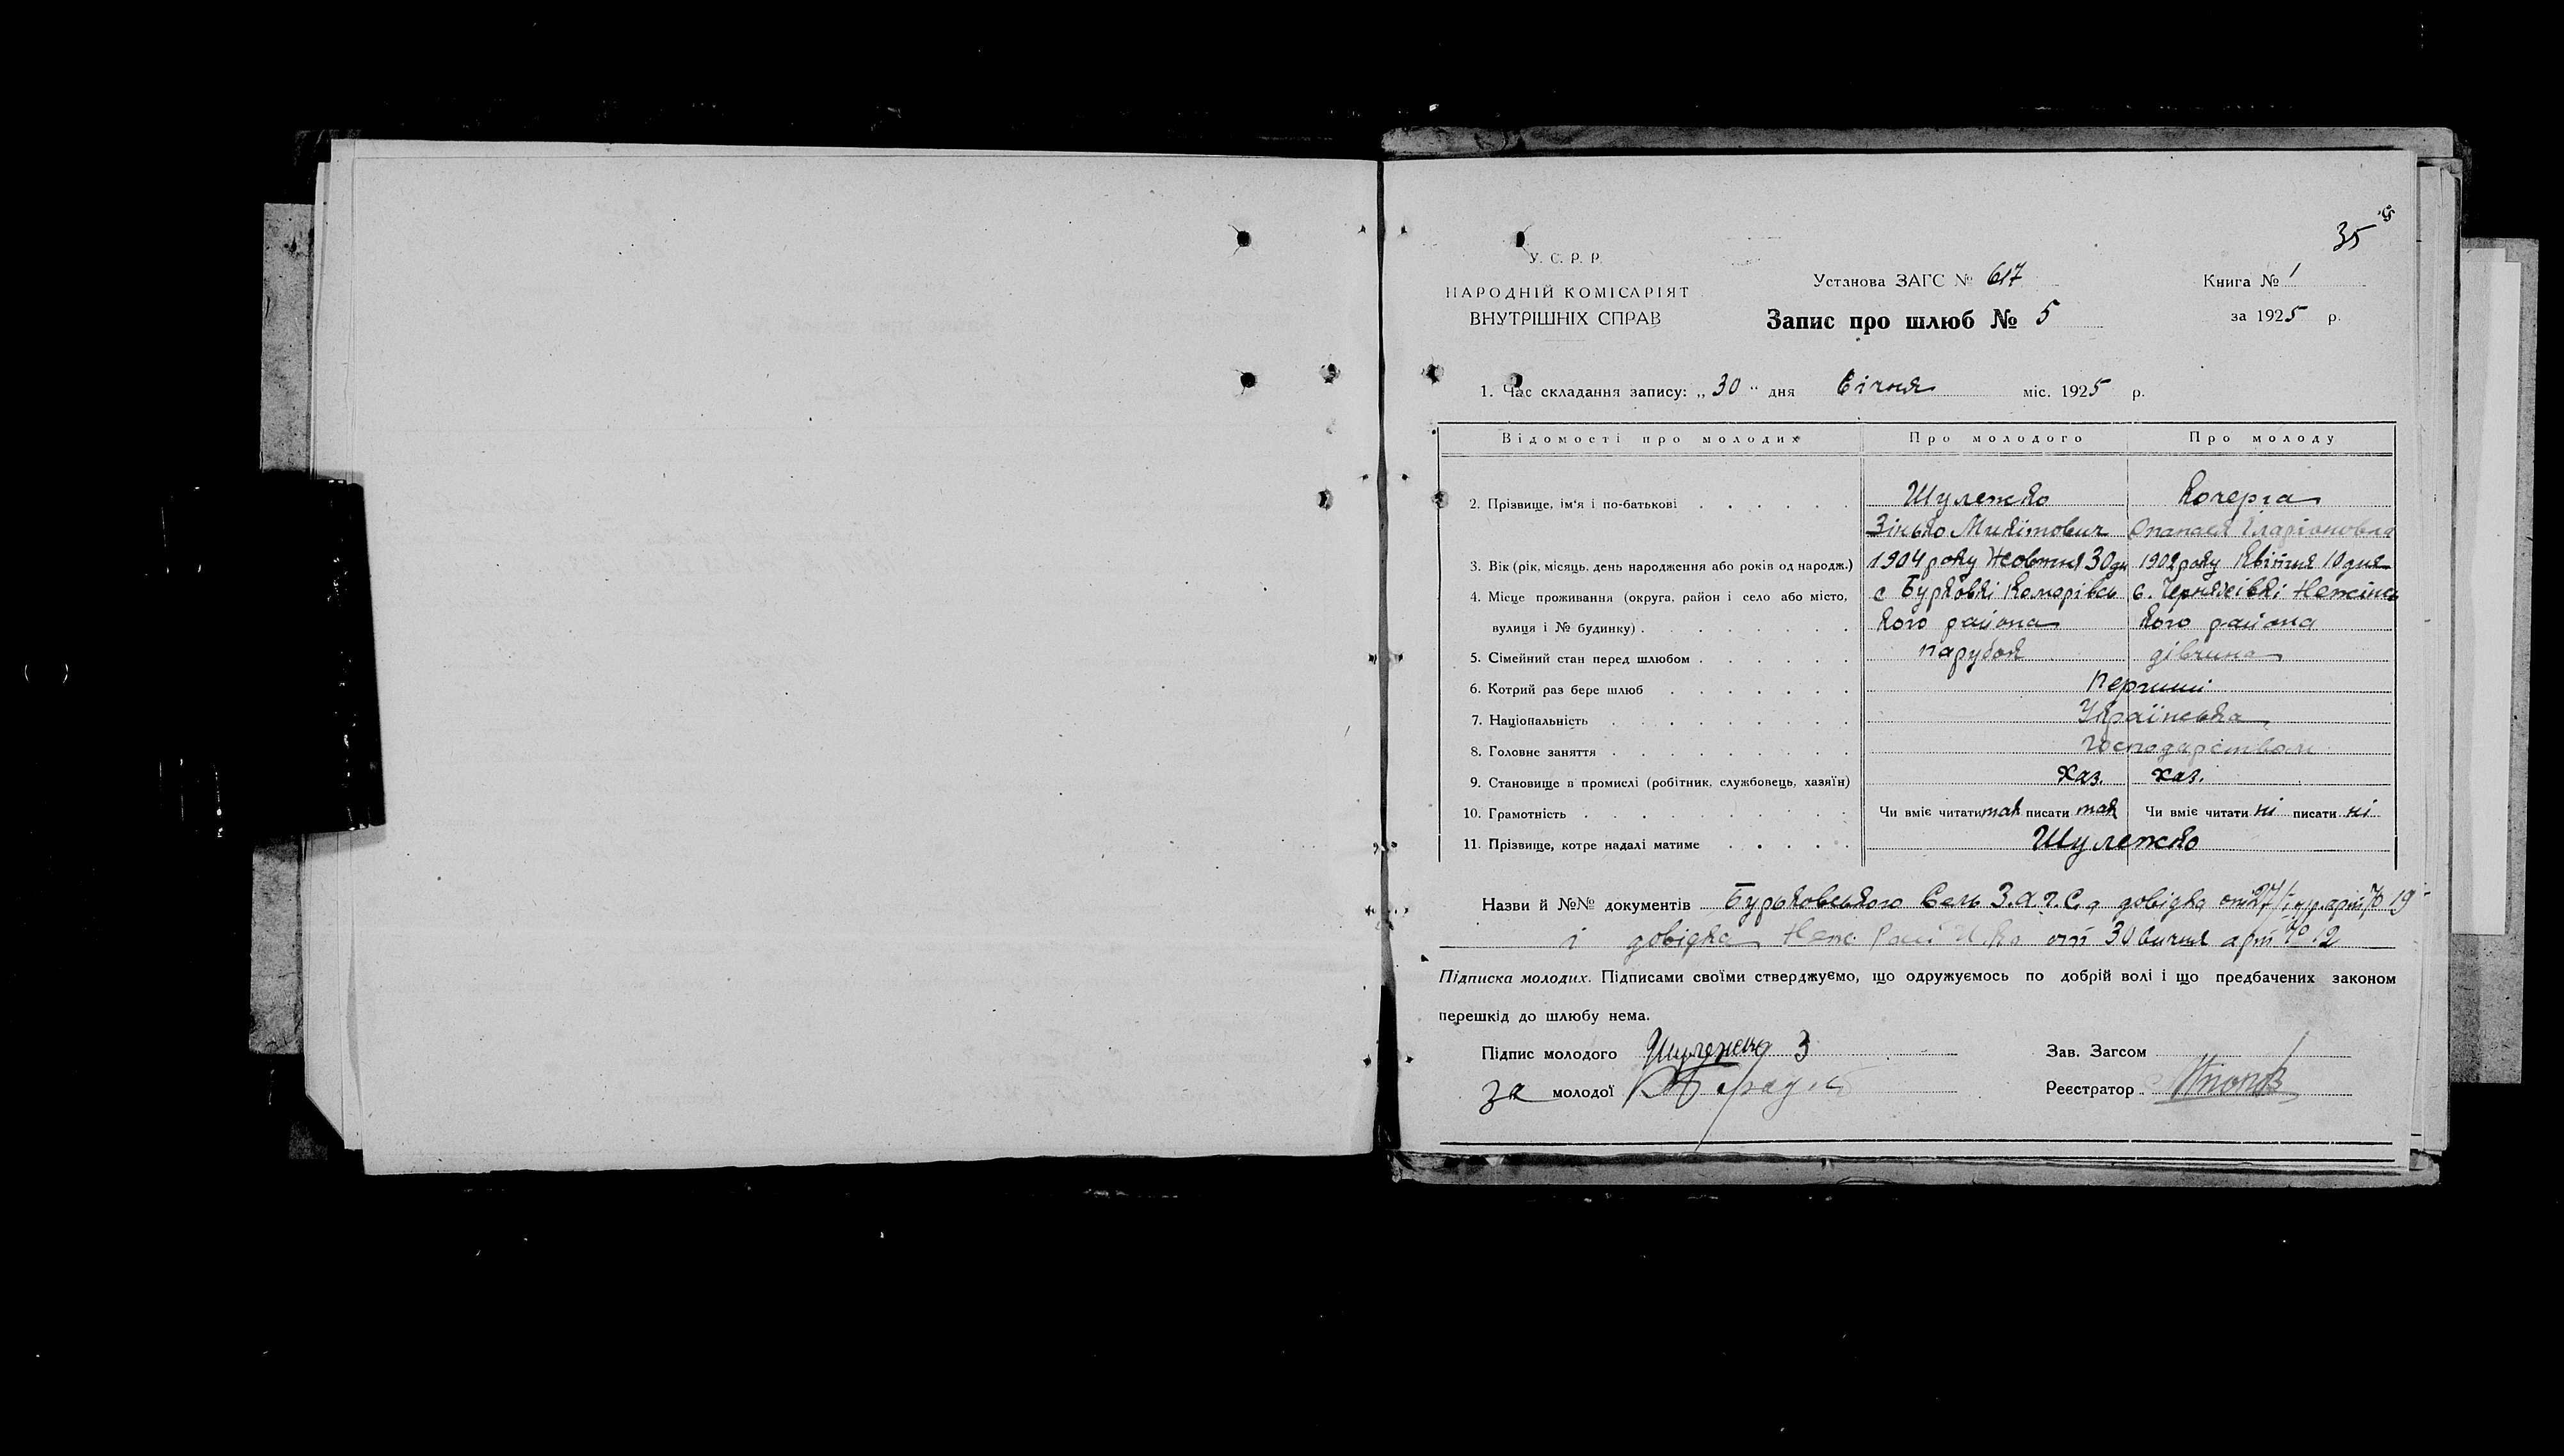 35
У. С. Р. Р.
НАРОДНІЙ КОМІСАРІЯТ
ВНУТРІШНІХ СПРАВ
Установа ЗАГС № 617
Запис про шлюб № 5
Книга № 1
за 1925 р.
1. Час складання запису: „ 30 “ дня Січня міс. 1925 р.
Відомості про молодих Про молодого Про молоду
2. Прізвище, ім'я і по-батькові Шулежко Кочерга
Зінько Микітович Опанася Іларіоновна
3. Вік (рік, місяць, день народження або років од народж.) 1904 року Жовтня 30 дн 1902 року Квітня 10 дня
4. Місце проживання (округа, район і село або місто, с Бурковкі Комарівсь с. Черняхівкі Неженсь
вулиця і № будинку) кого района кого района
5. Сімейний стан перед шлюбом парубок дівчина
6. Котрий раз бере шлюб Перший
7. Національність Українська
8. Головне заняття Господарством
9. Становище в промислі (робітник, службовець, хазяїн) хаз. хаз.
10. Грамотність Чи вміє читати так писати так Чи вміє читати ні писати ні
11. Прізвище, котре надалі матиме Шулежко
Назви й №№ документів Бурковського Сель З.А.Г.С.а довідка от 27/I
і довідка от 30 Січня № 12
Підписка молодих. Підписами своїми стверджуємо, що одружуємось по добрій волі і що предбачених законом
перешкід до шлюбу нема.
Підпис молодого Шулежко З
Зав. Загсом
за молодої
Реєстратор